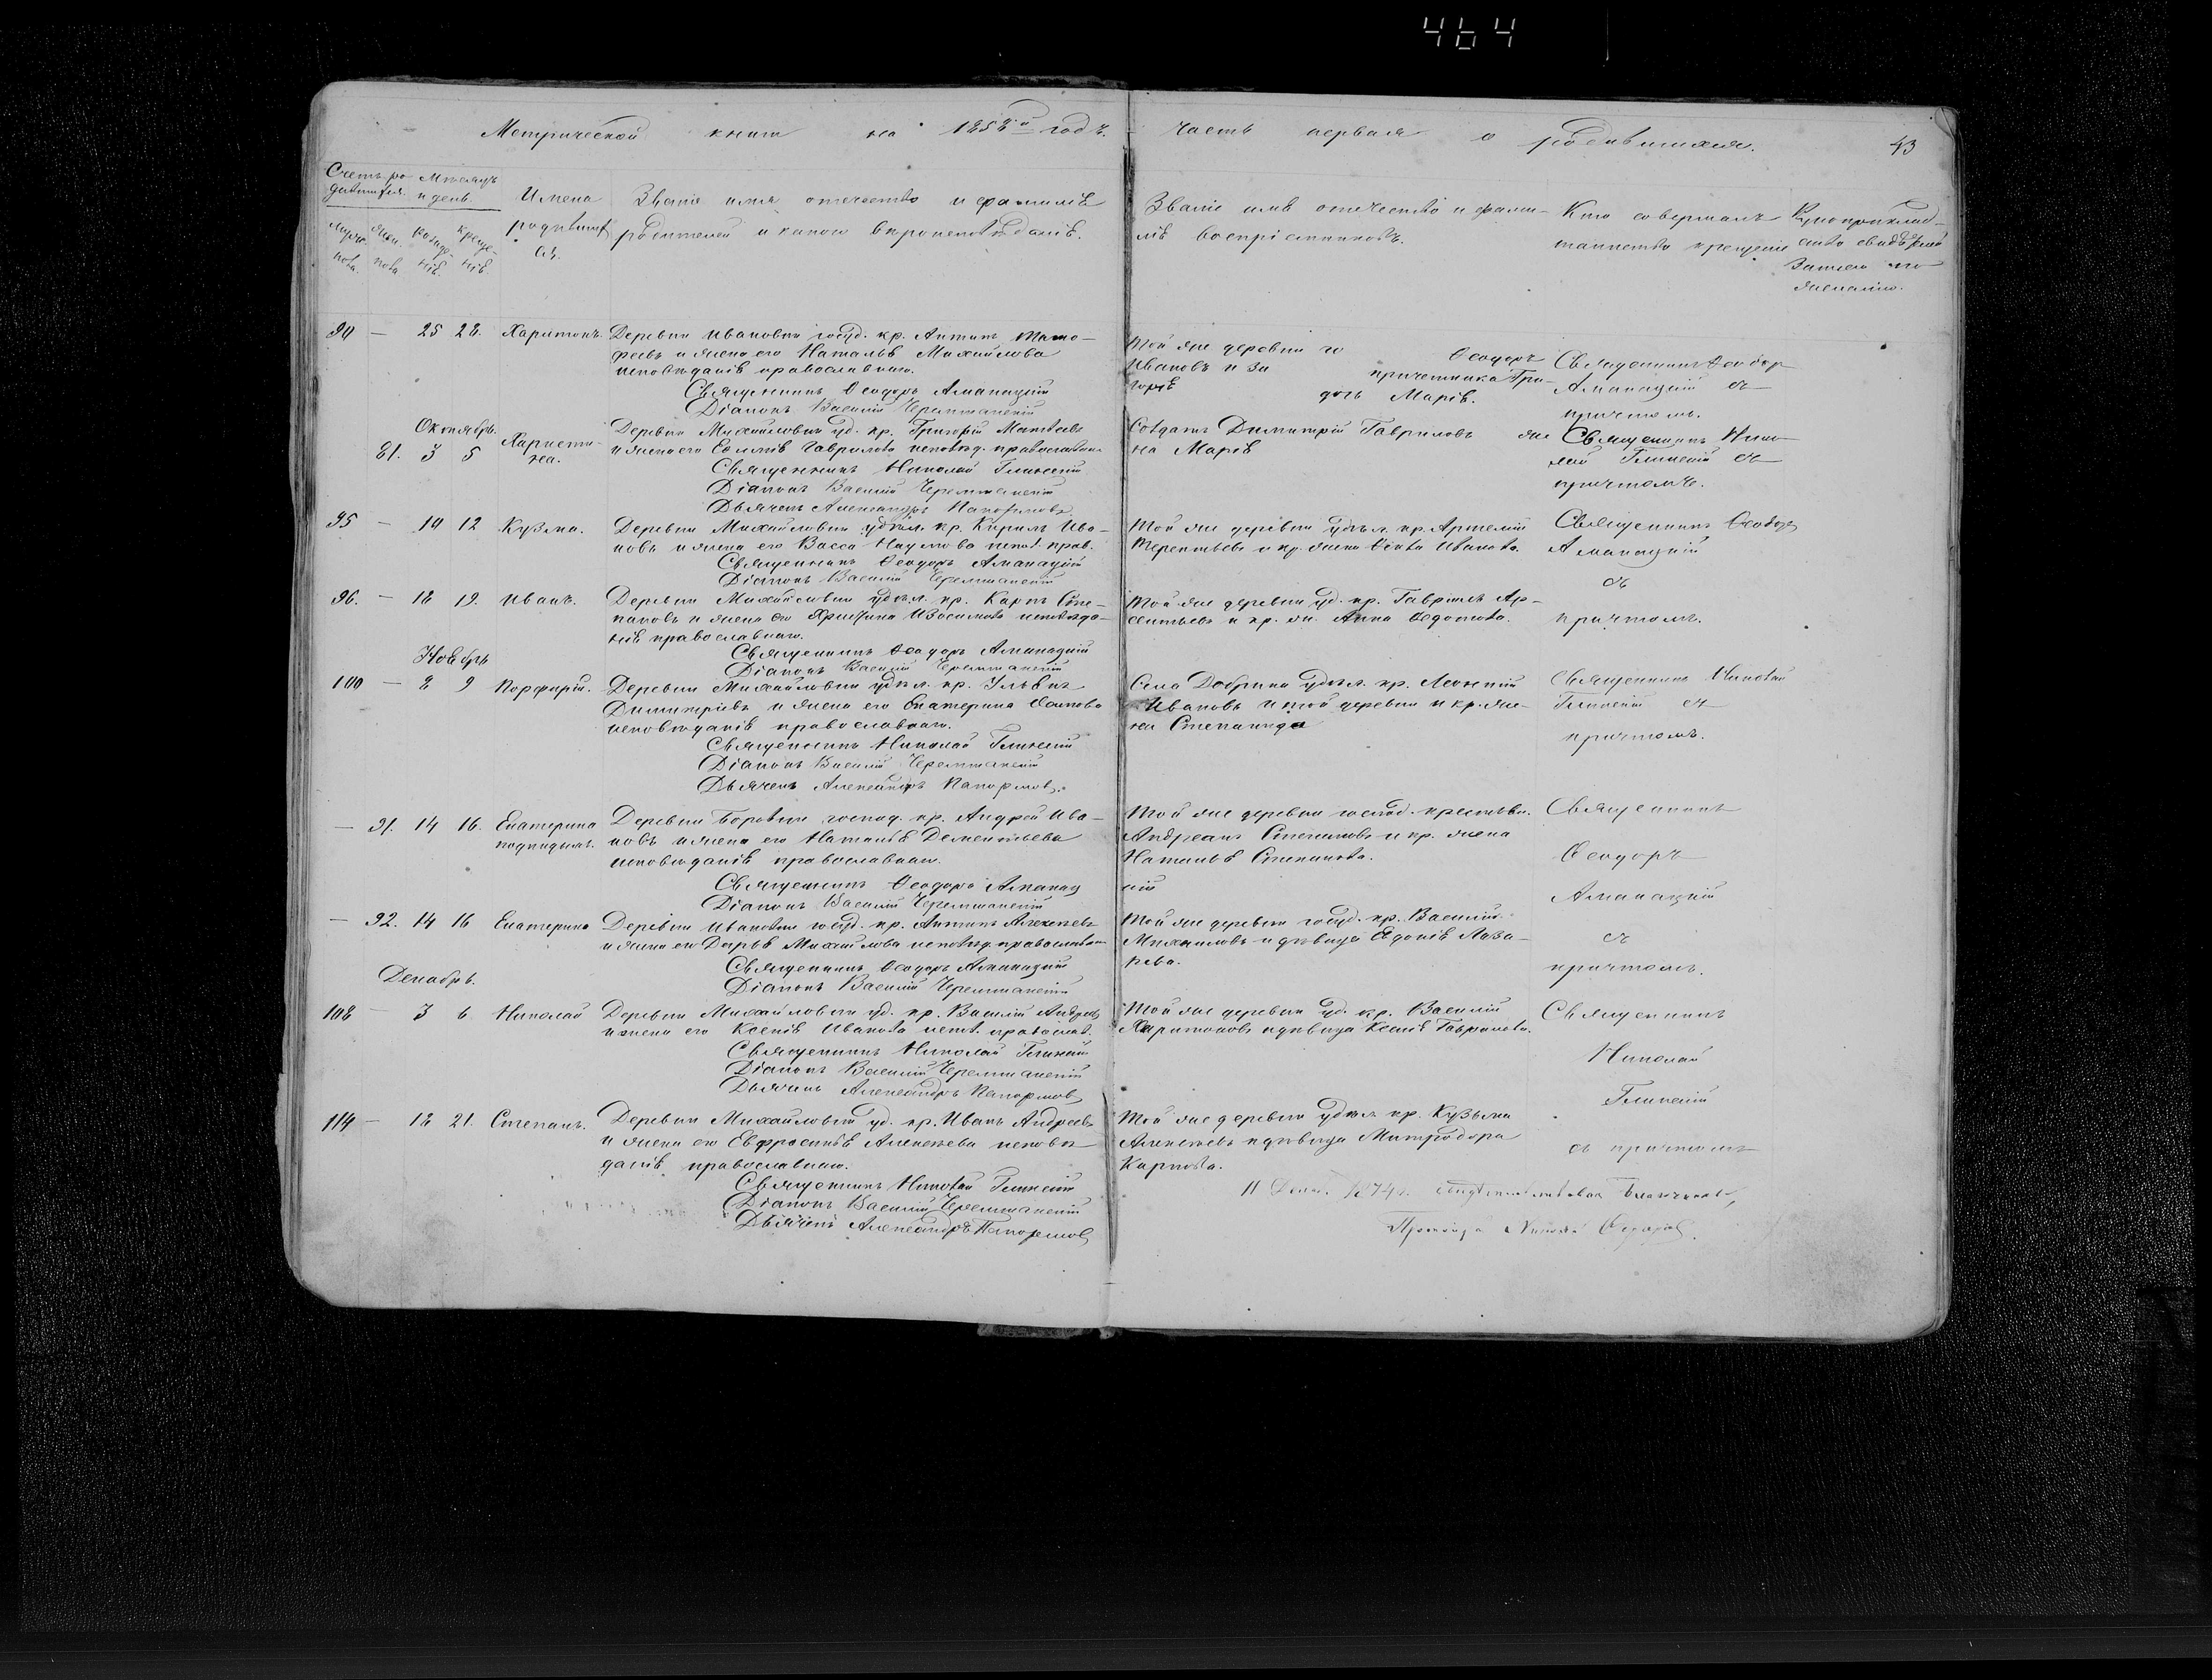 464
Метрической книги на 1858й годъ. часть первая о родившихся. 43
Счетъ ро- Мѣсяцъ
дившихся. и день.
Имена
родивших
ся.
Званіе имя отечество и фамилія
родителей и какого вѣроисповѣданія.
Званіе имя отечество и фами-
лія воспріемниковъ.
Кто совершалъ
таинство крещенія
муже- жен- рожде- креще-
ска. ска. нія. нія.
90 — 25 28. Харитонъ. Деревни Ивановки госуд. кр. Антипъ Тимо-
феевъ и жена его Наталья Михайлова
исповѣданія православнаго.
Священникъ Ѳеодоръ Алманацкій
Діаконъ Василій Черемшанскій
Той же деревни го Ѳеодоръ
Ивановъ и за причетника Гри-
горія дочь Марія.
Священникъ Ѳеодоръ
Алманацкій съ
причтомъ.
Октябрь.
81. 3 5 Харити-
на.
Деревни Михайловки уд. кр. Григорій Матвѣевъ
и жена его Гаврилова исповѣд. православнаго
Священникъ Николай Глинскій
Діаконъ Василій Черемшанскій
Дьячекъ Александръ
Солдатъ Димитрій Гавриловъ же
на Марія
Священникъ Нико-
лай Глинскій съ
причтомъ.
95 — 10 12 Кузма. Деревни Михайловки удѣл. кр. Кирилъ Ива-
новъ и жена его Васса Наумова испов. прав.
Священникъ Ѳеодоръ Алманацкій
Діаконъ Василій Черемшанскій
Той же деревни удѣл. кр. Артемій
Терентьевъ и кр. жена Ѳекла Иванова.
Священникъ Ѳеодоръ
Алманацкій
съ
причтомъ.
96. — 18 19. Иванъ. Деревни Михайловки удѣл. кр. Карпъ Сте-
пановъ и жена его Христина Изосимова исповѣда-
нія православнаго.
Священникъ Ѳеодоръ Алманацкій
Діаконъ Василій Черемшанскій
Той же деревни уд. кр. Гавріилъ Ар-
сентьевъ и кр. жн. Анна Ѳедотова.
Ноябрь
100 — 8 9 Порфирій. Деревни Михайловки удѣл. кр. Ульянъ
Димитріевъ и жена его Екатерина
исповѣданія православнаго.
Священникъ Николай Глинскій
Діаконъ Василій Черемшанскій
Дьячекъ Александръ
Села Добрина удѣл. кр. Леонтій
Ивановъ и той деревни и кр. же-
на Степанида
Священникъ Николай
Глинскій съ
причтомъ.
— 91. 14 16. Екатерина
подкидыш.
Деревни Боровки госуд. кр. Андрей Ива-
новъ и жена его Наталья Дементьева
исповѣданія православнаго.
Священникъ Ѳеодоръ Алманац
кій
Діаконъ Василій Черемшанскій
Той же деревни госуд. крестьян.
Андреянъ Степановъ и кр. жена
Наталья Степанова.
Священникъ
Ѳеодоръ
Алманацкій
съ
причтомъ.
— 92. 14 16 Екатерина Деревни Ивановки госуд. кр. Антипъ Алексѣевъ
и жена его Дарья Михайлова исповѣд. православнаго
Священникъ Ѳеодоръ Алманацкій
Діаконъ Василій Черемшанскій
Той же деревни госуд. кр. Василій
Михайловъ и дѣвица Евдокія Лаза-
рева.
Декабрь.
108 — 3 6 Николай Деревни Михайловки уд. кр. Василій Андреевъ
и жена его Ксенія Иванова испов. православ.
Священникъ Николай Глинскій
Діаконъ Василій Черемшанскій
Дьячекъ Александръ
Той же деревни уд. кр. Василій
Харитоновъ и дѣвица Ксенія Гаврилова.
Священникъ
Николай
Глинскій
съ причтомъ
114 — 18 21. Степанъ. Деревни Михайловки уд. кр. Иванъ Андреевъ
и жена его Евфросинія Алексѣева исповѣ-
данія православнаго.
Священникъ Николай Глинскій
Діаконъ Василій Черемшанскій
Дьячекъ Александръ
Той же деревни удѣл. кр. Кузьма
Алексѣевъ и дѣвица Митродора
Карпова.
11 1874 г.